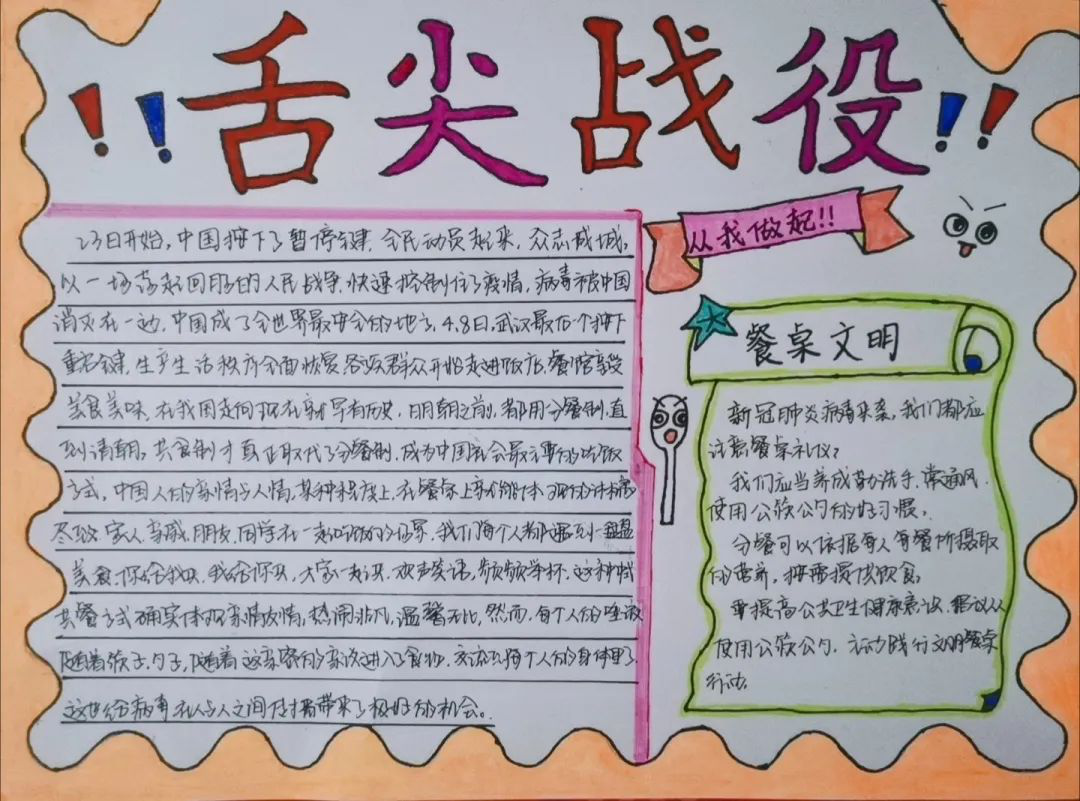 !! 舌尖战役 !!
23日开始,中国按下了暂停键.全民动员起来,众志成城,
以一场荡起回肠的人民战争,快速控制住了疫情,病毒被中国
消灭在一边,中国成了全世界最安全的地方,4.8日,武汉最后一个按下
重启键,生产生活秩序全面恢复各族群众开始走进饭店,餐馆享受
美食美味,在我国走向现在就早有历史,明朝之前,都用分餐制,直
到清朝,共食制才真正取代了分餐制,成为中国社会最主要的吃饭
方式,中国人的亲情与人情,某种程度上,在餐桌上就能体现的淋漓
尽致家人,亲戚,朋友,同学在一起吃饭的场景,我们每个人都遇到一盘盘
美食,你给我夹,我给你夹,大家一起夹,欢声笑语,频频举杯,这种
共餐方式确实体现亲情友情,热闹非凡,温馨无比,然而,每个人的唾液
随着筷子,勺子,随着这亲密的进入了食物,交流到每个人的身体里了.
这也给病毒在人与人之间传播带来了极好的机会。
从我做起!!
餐桌文明
新冠肺炎病毒来袭,我们都应
注意餐桌礼仪?
我们应当养成勤洗手,常通风,
使用公筷公勺的好习惯。
分餐可以依据每人每餐所摄取
的营养,按需提供饮食。
要提高公共卫生健康意识,
使用公筷公勺,主动践行文明餐桌
行动。